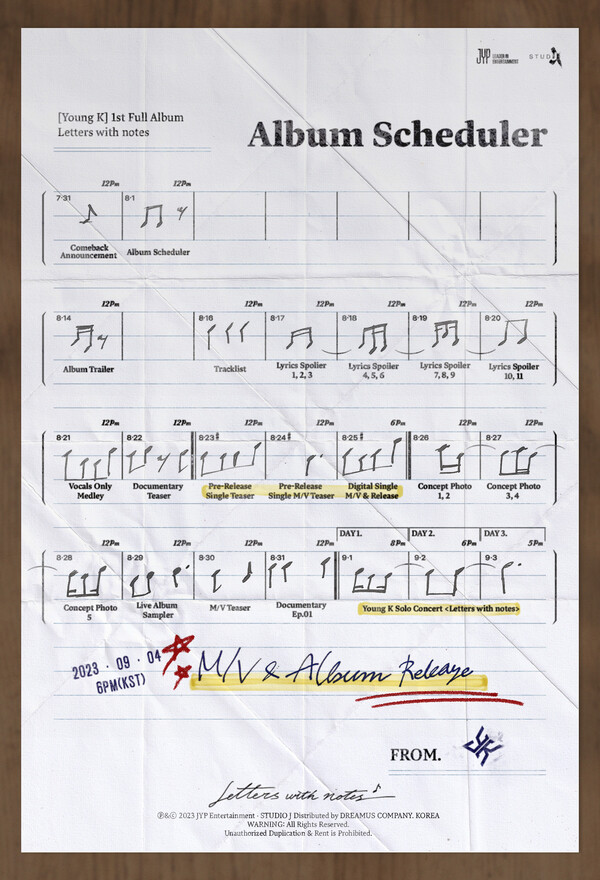 JYP LEADER IN
ENTERTAINMENT
STUDIO J
[Young K] 1st Full Album
Letters with notes
Album Scheduler
12Pm 12Pm
7·31 8·1
Comeback
Announcement
Album Scheduler
12Pm 12Pm 12Pm 12Pm 12Pm 12Pm
8·14 8·16 8·17 8·18 8·19 8·20
Album Trailer
Tracklist
Lyrics Spoiler
1, 2, 3
Lyrics Spoiler
4, 5, 6
Lyrics Spoiler
7, 8, 9
Lyrics Spoiler
10, 11
12Pm 12Pm 12Pm 12Pm 6Pm 12Pm 12Pm
8·21 8·22 8·23 8·24 8·25 8·26 8·27
Vocals Only
Medley
Documentary
Teaser
Pre-Release
Single Teaser
Pre-Release
Single M/V Teaser
Digital Single
M/V & Release
Concept Photo
1, 2
Concept Photo
3, 4
DAY1. DAY2. DAY3.
12Pm 12Pm 12Pm 12Pm 8Pm 6Pm 5Pm
8·28 8·29 8·30 8·31 9·1 9·2 9·3
Concept Photo
5
Live Album
Sampler
M/V Teaser
Documentary
Ep.01
Young K Solo Concert <Letters with notes>
2023 · 09 · 04
6PM(KST)
M/V & Album Release
FROM.
Letters with notes
℗&© 2023 JYP Entertainment · STUDIO J Distributed by DREAMUS COMPANY. KOREA
WARNING: All Rights Reserved.
Unauthorized Duplication & Rent is Prohibited.